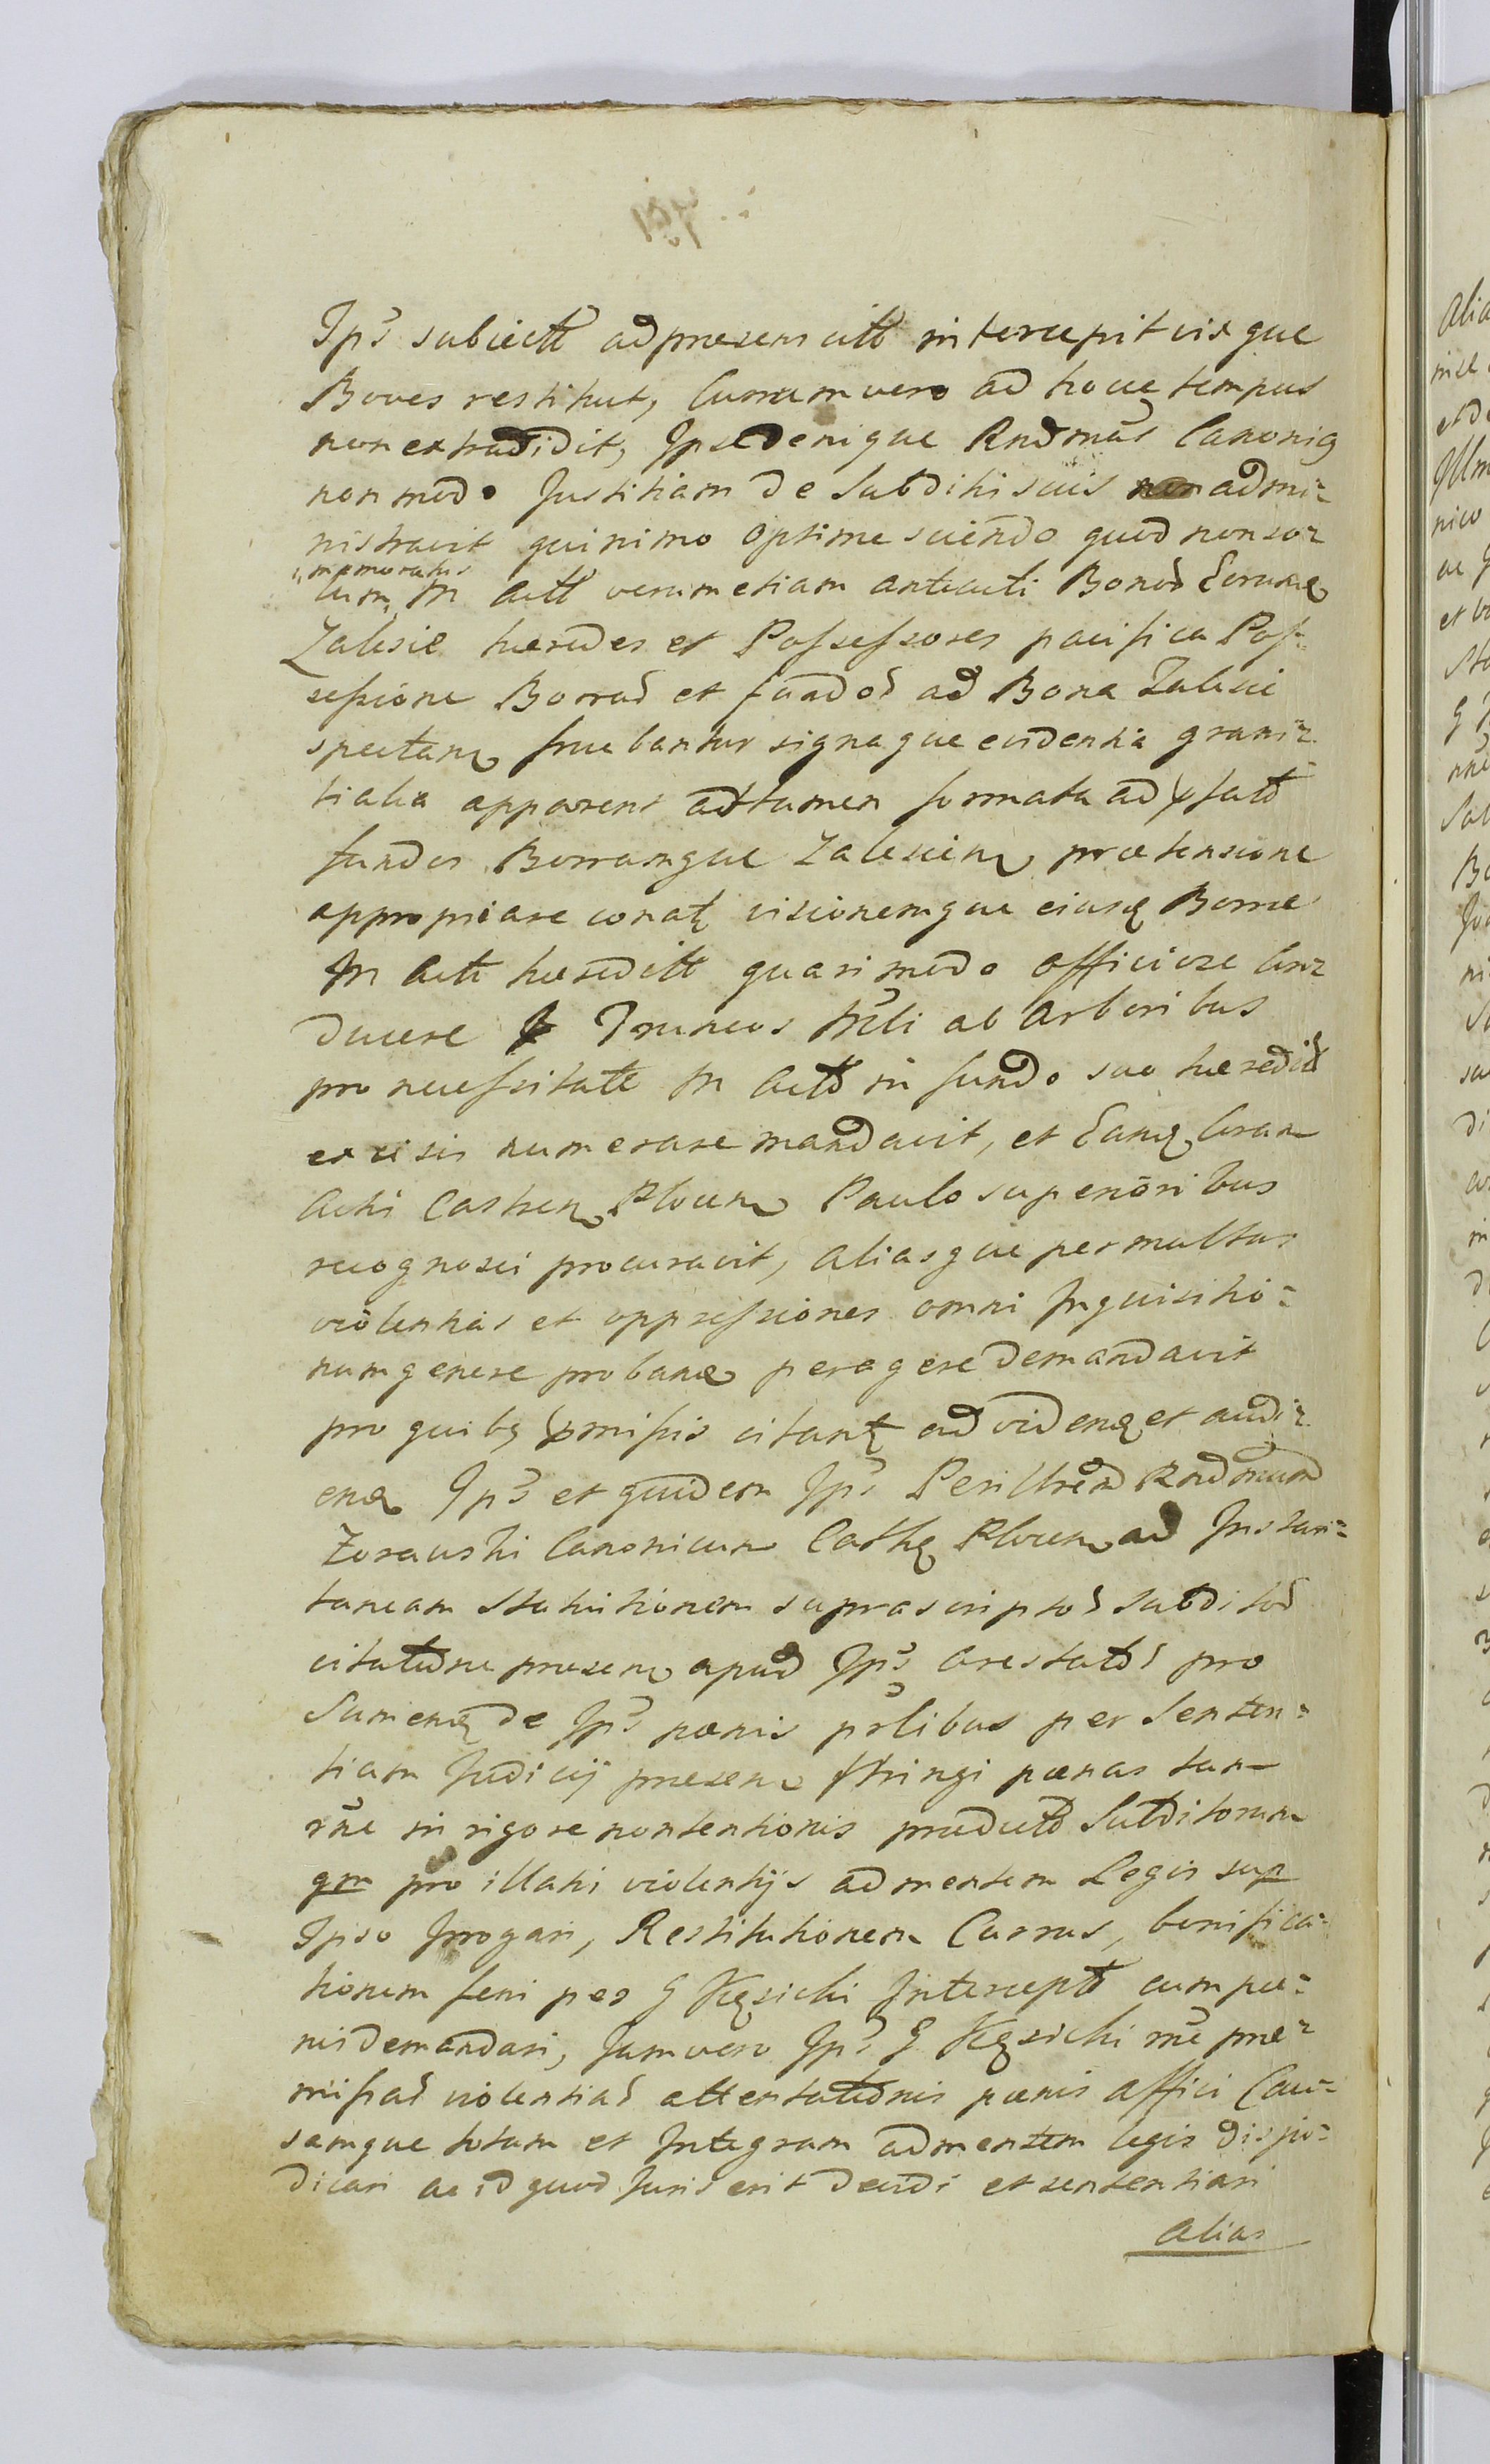 Ips subiectt ad praesens citt intercepit eisque
Boves restituit, Currum vero ad hocce tempus
non extradidit, Ipse denique Rndmus Canonig
non modo Justitiam de Subditis suis admi=
nistravit quinimo optime sciendo quod non so=
memoratus
lum, M Actt verum etiam antecuti Bonor Eorumq
Zalesie haeredes et Possessores pacifica Pos=
sessione Borrar et fundor ad Bona Zalesie
spectan fruebantur signaque evidentia grani=
tialia apparent adtamen formata ad pfatt
fundos Borramque Zalescien praetensione
appropriare conat visionemque eiusq Borrae
M Actt haereditt quasi modo officiose con=
ducere Truncos Mcli ab Arboribus
pro necessitate M Actt in fundo suo haeredit
excisis numerare mandavit, et Eamq Coram
Actis Castren Plocen Paulo superioribus
recognosci procuravit, aliasque permultas
violentias et oppressiones omni Inquisitio=
num genere proban peragere demandavit
pro quibq pmissis citant ad viden et audi=
en Ips et quidem Ips Perillrem Rndmum
Zorawski Canonicum Cathq Plocen ad Instan=
taneam Statuitionem suprascriptor Subditor
citatione praesen apud Ips Arestator pro
Sumen de Ips poenis plibus per Senten=
tiam Judicij praesen stringi poenas tan
rne in rigore nontentionis praedictt Subditorum
qm pro illatis violentijs ad mentem Legis sup
Ipso Irrogari, Restitutionem Currus, bonifica=
tionem feni per G Kęsicki Intercept cum poe=
nis demandari, Jam vero Ips G Kęsicki rne prae=
missar violentiar attentationis poenis affici Cau=
samque totam et Integram ad mentem legis disju=
dicari ac id quod Juris erit decidi et sententiari
alias